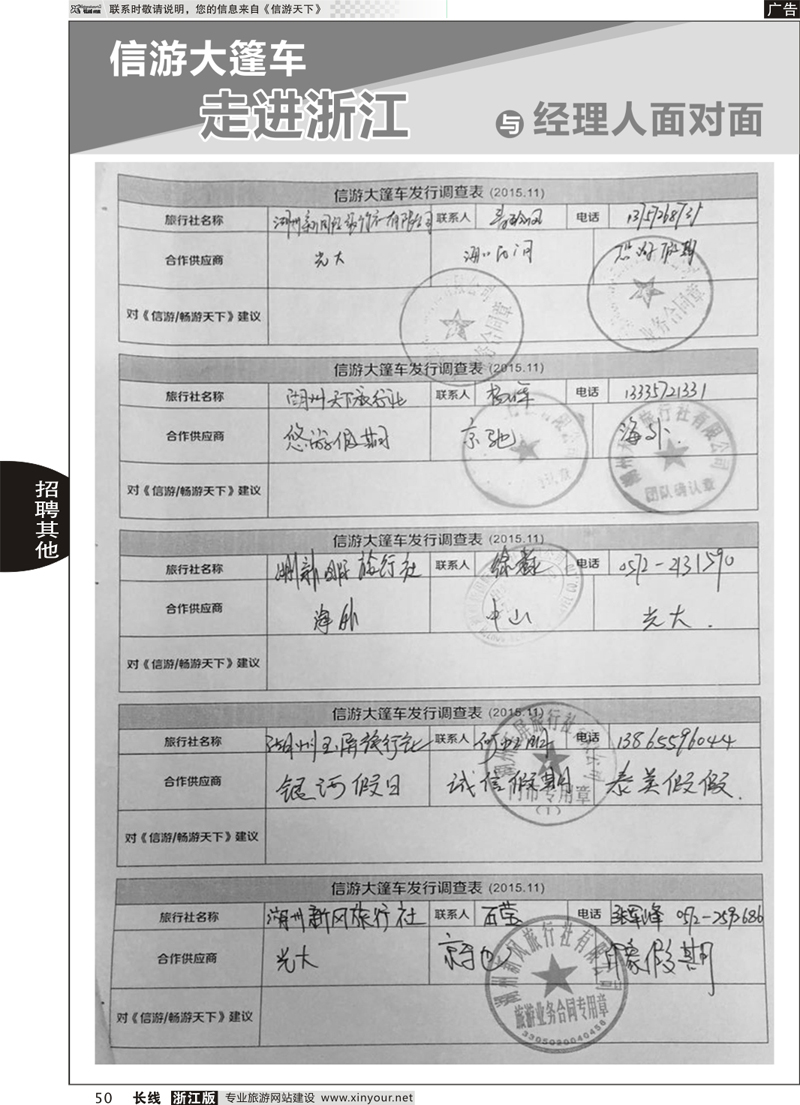 联系时敬请说明，您的信息来自《信游天下》
广告
信游大篷车
走进浙江 与 经理人面对面
信游大篷车发行调查表 (2015.11)
旅行社名称 联系人 电话
合作供应商 光大
对《信游/畅游天下》建议
业务合同章
信游大篷车发行调查表 (2015.11)
旅行社名称 湖州天下旅行社 联系人 电话 13335721331
合作供应商 悠游假期 京驰 海外.
对《信游/畅游天下》建议
团队确认章
信游大篷车发行调查表 (2015.11)
旅行社名称 旅行社 联系人 徐 电话 0572-2131590
合作供应商 海外 中山 光大.
对《信游/畅游天下》建议
信游大篷车发行调查表 (2015.11)
旅行社名称 湖州玉屏旅行社 联系人 电话 13865596044
合作供应商 银河假日 诚信假期 泰美假假.
对《信游/畅游天下》建议
门市专用章
(1)
信游大篷车发行调查表 (2015.11)
旅行社名称 湖州新风旅行社 联系人 石莹 电话 0572-2593686
合作供应商 光大 京驰 假期
对《信游/畅游天下》建议
湖州新风旅行社有限公司
旅游业务合同专用章
招聘其他
50 长线 浙江版 专业旅游网站建设 www.xinyour.net